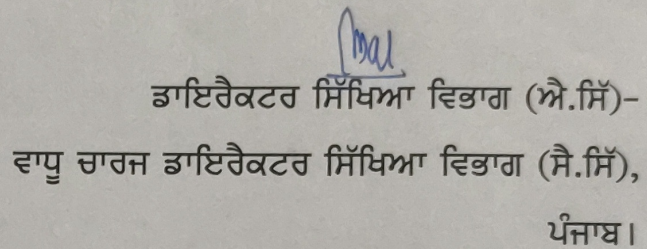 ਡਾਇਰੈਕਟਰ ਸਿੱਖਿਆ ਵਿਭਾਗ (ਐ.ਸਿੱ)-
ਵਾਧੂ ਚਾਰਜ ਡਾਇਰੈਕਟਰ ਸਿੱਖਿਆ ਵਿਭਾਗ (ਸੈ.ਸਿੱ),
ਪੰਜਾਬ।